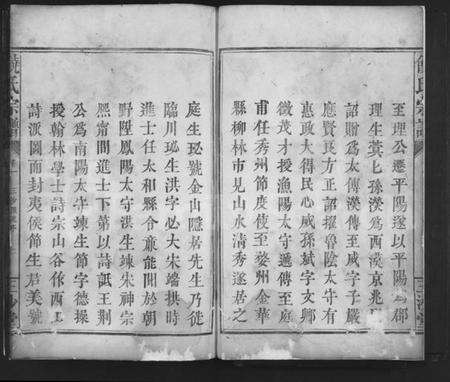 至理公遷平陽遂以平陽為郡
理生蓂七孫渙為西漢京兆
詔贈為太傅渙傳至威字子嚴
應賢良方正詔擢魯陰太守有
惠政大得民心威孫斌字文卿
徵茂才授漁陽太守遞傳至庭
甫任秀州節度使至婺州金華
縣柳林市見山水清秀遂居之
庭生珌號金山隱居先生乃徙
臨川珌生洪字必大宋端拱時
進士任太和縣令兼能聞於朝
野陞鳳陽太守洪生竦宋神宗
熙甯間進士下第以詩詆王荆
公為南陽太守竦生節字德操
授翰林學士詩宗山谷作西江
詩派圖而封夷侯節生君美號
饒氏宗譜